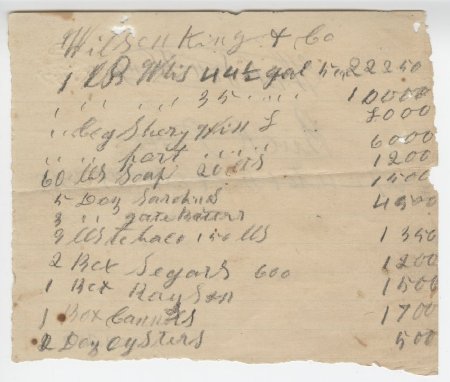 Wilson King & Co
1 BB Whis 44½ gal 5 22250
" " " 35 " " 10000
" Ceg Shery Win £ 8000
" " port " " " 6000
60 lls Soap 20 lls 1200
5 Doz Sardins 1500
3 " gate Bitters 4500
3 lls tebaco 150 lls 1350
2 Box Segars 600 1200
1 Box Raysen 1500
1 Box Candls 1700
2 Doz oysters 500